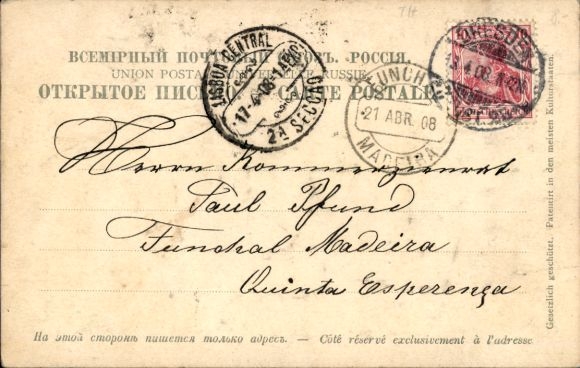 ВСЕМІРНЫЙ РОССІЯ.
UNION POSTALE RUSSIE
ОТКРЫТОЕ POSTALE
LISBOA CENTRAL
17-4-08
2A SECÇÃO
FUNCHAL
21 ABR. 08
MADEIRA
DRESDEN
Herrn Kommerzienrat
Paul Pfund
Funchal Madeira
Quinta Esperença
На этой сторонѣ пишется только адресъ. — Côté réservé exclusivement à l'adresse
Gesetzlich geschützt. Patentirt in den meisten Kulturstaaten.